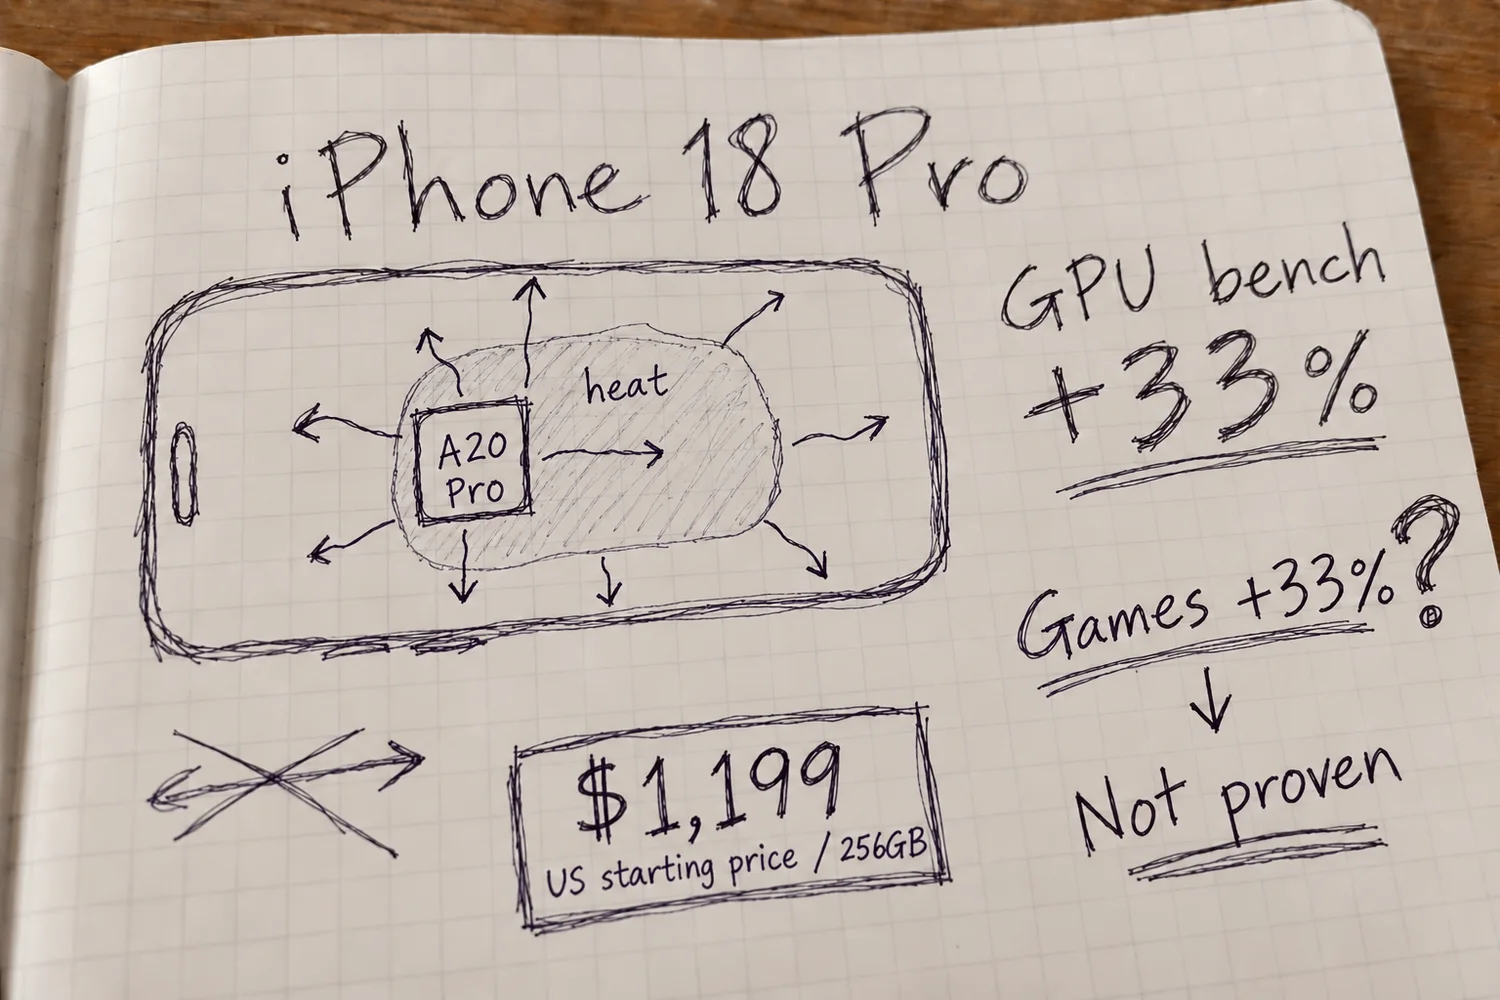 iPhone 18 Pro
heat
A20
Pro
GPU bench
+33%
Games +33%?
Not proven
$1,199
US starting price / 256GB